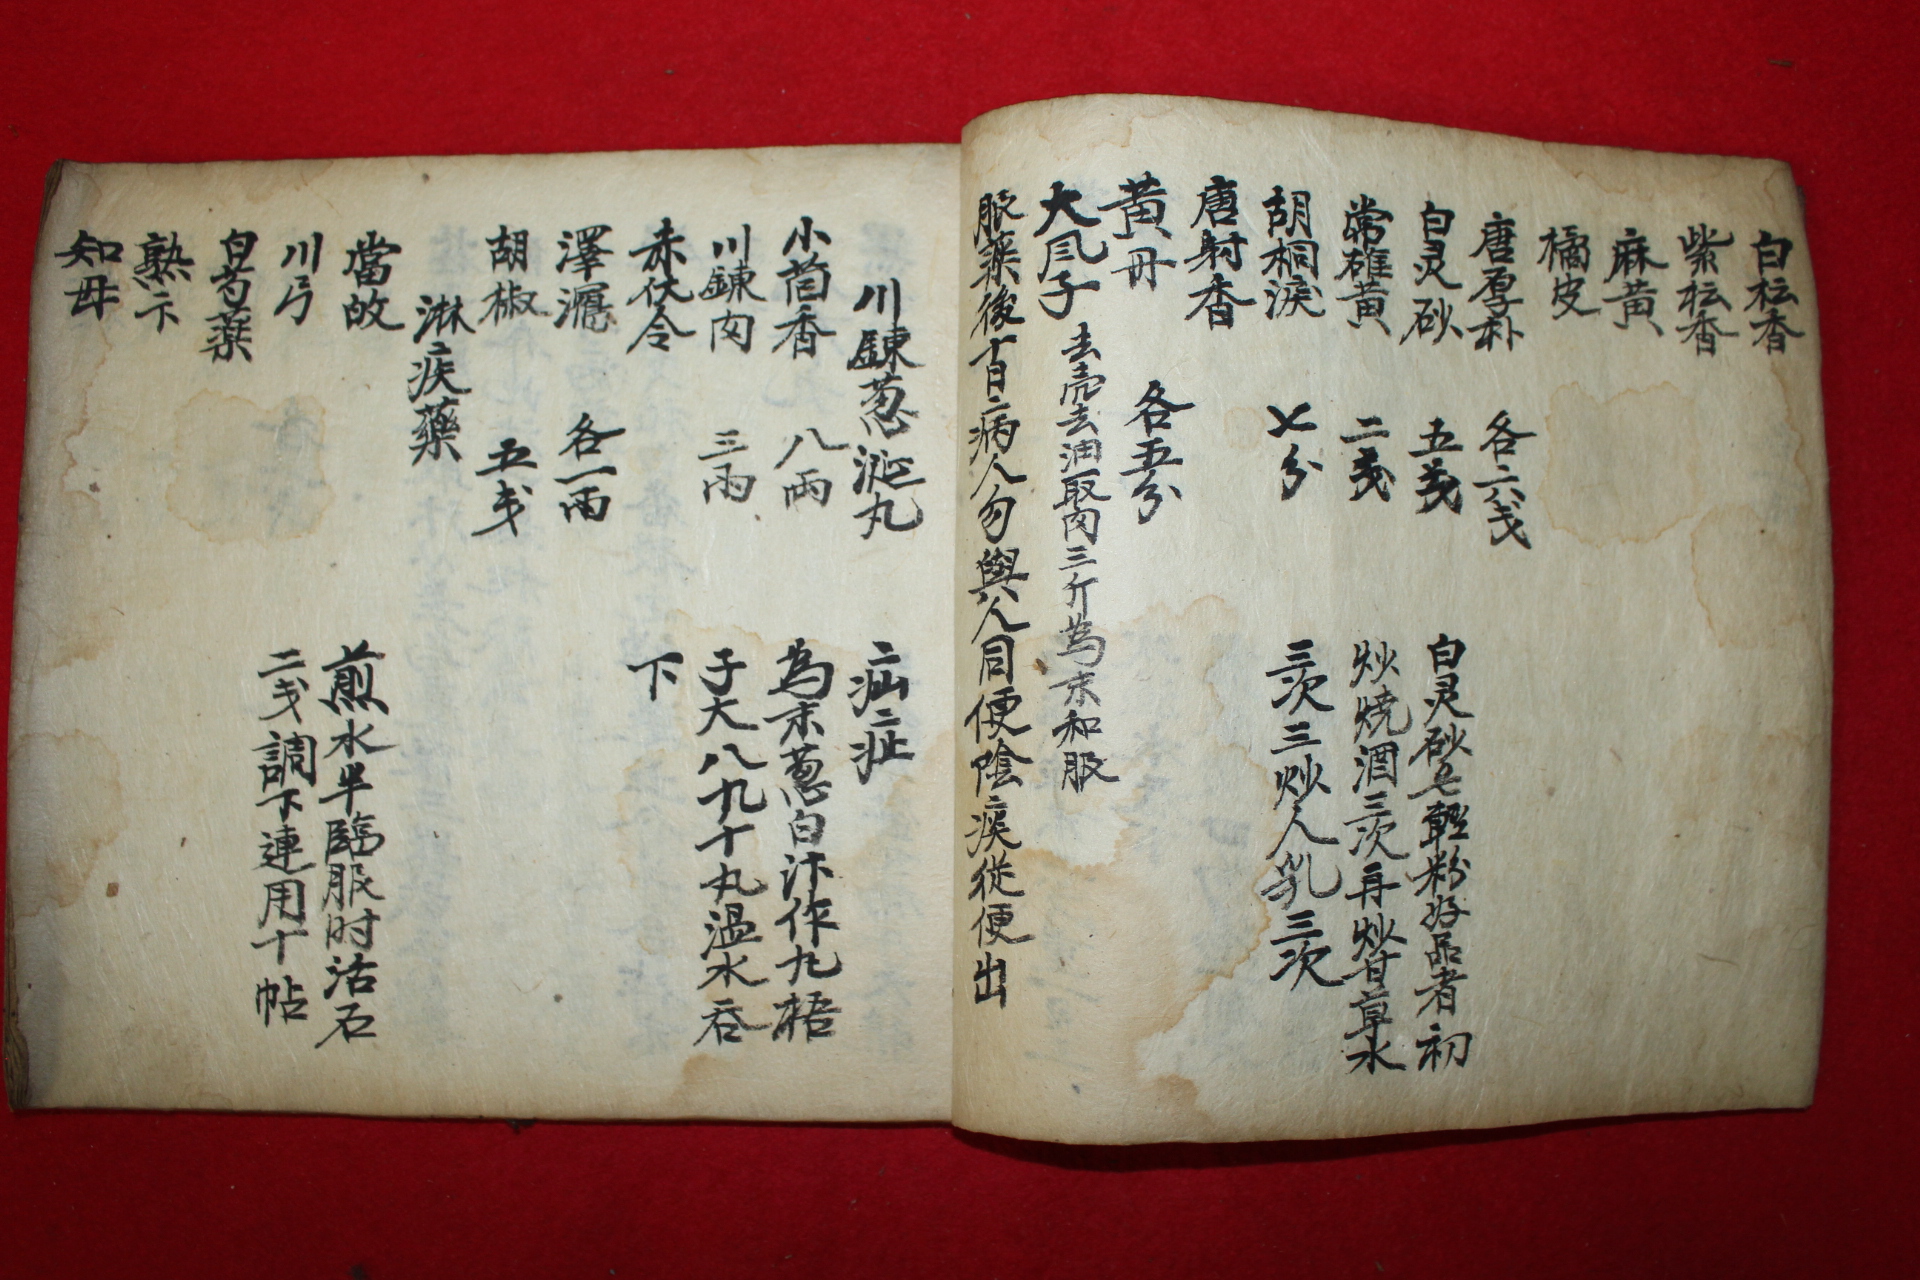 白枟香
紫枟香
麻黃
橘皮
唐厚朴 各二六戔
白灵砂 五戔 白灵砂七輕粉好品者初
常雄黃 二戔 炒燒酒三次再炒甘草水
胡桐淚 七分 三次三炒人乳三次
唐射香
黃丹 各五分
大風子 去壳去油取肉三斤為末和服
服藥後百病人勿與人同便陰疾從便出
川鍊葱涎丸 疝症
小茴香 八兩 為末葱白汁作丸梧
川鍊肉 三兩 子大八九十丸溫水呑
赤伏令 下
澤瀉 各一兩
胡椒 五戔
淋疾藥
當皈 煎水半臨服时活石
川弓 二戔調下連用十帖
白芍藥
熟卞
知母